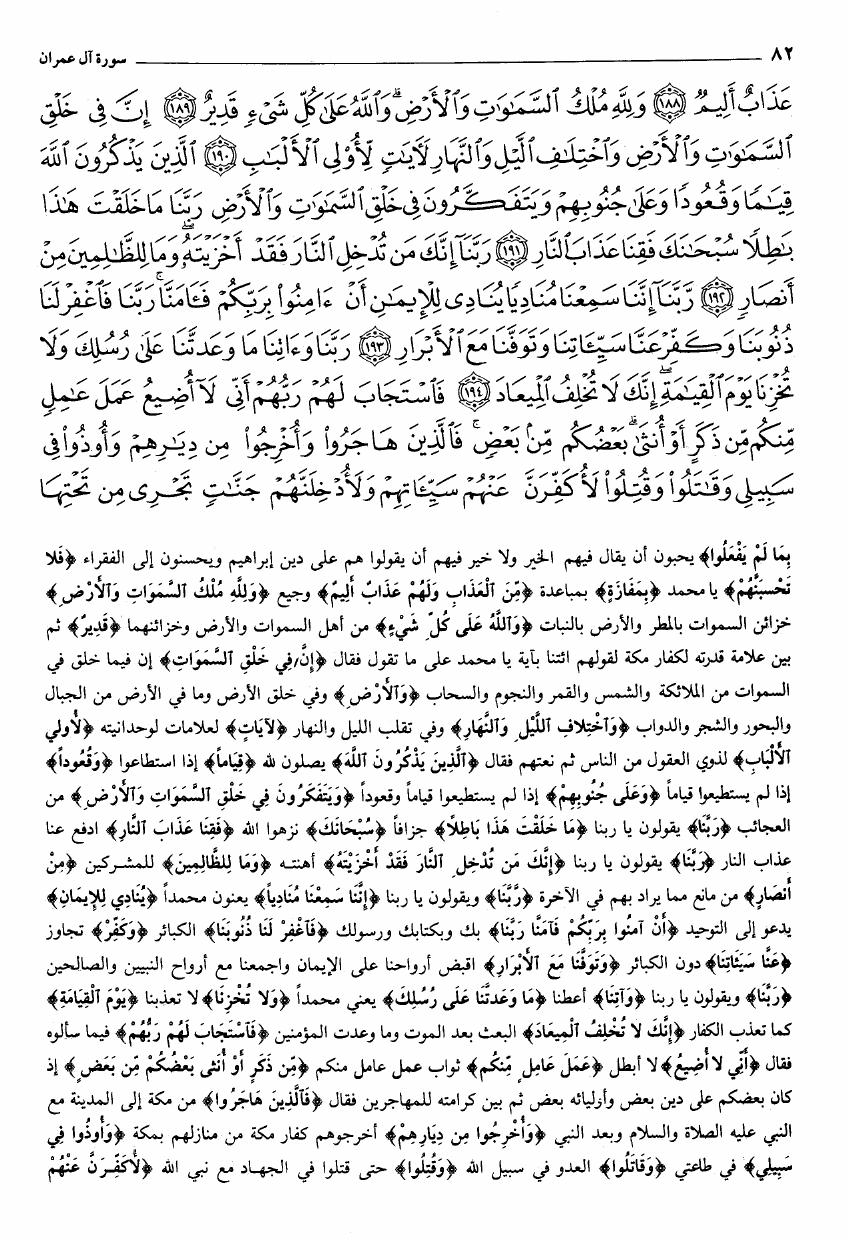 ٨٢ سورة آل عمران
عَذَابٌ أَلِيمٌ ﴿١٨٨﴾ وَلِلَّهِ مُلْكُ السَّمَٰوَٰتِ وَالْأَرْضِ ۗ وَاللَّهُ عَلَىٰ كُلِّ شَىْءٍ قَدِيرٌ ﴿١٨٩﴾ إِنَّ فِى خَلْقِ
السَّمَٰوَٰتِ وَالْأَرْضِ وَاخْتِلَٰفِ الَّيْلِ وَالنَّهَارِ لَءَايَٰتٍ لِّأُو۟لِى الْأَلْبَٰبِ ﴿١٩٠﴾ الَّذِينَ يَذْكُرُونَ اللَّهَ
قِيَٰمًا وَقُعُودًا وَعَلَىٰ جُنُوبِهِمْ وَيَتَفَكَّرُونَ فِى خَلْقِ السَّمَٰوَٰتِ وَالْأَرْضِ رَبَّنَا مَا خَلَقْتَ هَٰذَا
بَٰطِلًا سُبْحَٰنَكَ فَقِنَا عَذَابَ النَّارِ ﴿١٩١﴾ رَبَّنَآ إِنَّكَ مَن تُدْخِلِ النَّارَ فَقَدْ أَخْزَيْتَهُۥ ۖ وَمَا لِلظَّٰلِمِينَ مِنْ
أَنصَارٍ ﴿١٩٢﴾ رَّبَّنَآ إِنَّنَا سَمِعْنَا مُنَادِيًا يُنَادِى لِلْإِيمَٰنِ أَنْ ءَامِنُوا۟ بِرَبِّكُمْ فَـَٔامَنَّا ۚ رَبَّنَا فَاغْفِرْ لَنَا
ذُنُوبَنَا وَكَفِّرْ عَنَّا سَيِّـَٔاتِنَا وَتَوَفَّنَا مَعَ الْأَبْرَارِ ﴿١٩٣﴾ رَبَّنَا وَءَاتِنَا مَا وَعَدتَّنَا عَلَىٰ رُسُلِكَ وَلَا
تُخْزِنَا يَوْمَ الْقِيَٰمَةِ ۗ إِنَّكَ لَا تُخْلِفُ الْمِيعَادَ ﴿١٩٤﴾ فَاسْتَجَابَ لَهُمْ رَبُّهُمْ أَنِّى لَآ أُضِيعُ عَمَلَ عَٰمِلٍ
مِّنكُم مِّن ذَكَرٍ أَوْ أُنثَىٰ ۖ بَعْضُكُم مِّنۢ بَعْضٍ ۖ فَالَّذِينَ هَاجَرُوا۟ وَأُخْرِجُوا۟ مِن دِيَٰرِهِمْ وَأُوذُوا۟ فِى
سَبِيلِى وَقَٰتَلُوا۟ وَقُتِلُوا۟ لَأُكَفِّرَنَّ عَنْهُمْ سَيِّـَٔاتِهِمْ وَلَأُدْخِلَنَّهُمْ جَنَّٰتٍ تَجْرِى مِن تَحْتِهَا
بِمَا لَمْ يَفْعَلُوا﴾ يحبون أن يقال فيهم الخير ولا خير فيهم أن يقولوا هم على دين إبراهيم ويحسنون إلى الفقراء ﴿فَلا
تَحْسَبَنَّهُمْ﴾ يا محمد ﴿بِمَفَازَةٍ﴾ بمباعدة ﴿مِّنَ الْعَذَابِ وَلَهُمْ عَذَابٌ أَلِيمٌ﴾ وجيع ﴿وَلِلَّهِ مُلْكُ السَّمَوَاتِ وَالْأَرْضِ﴾
خزائن السموات بالمطر والأرض بالنبات ﴿وَاللَّهُ عَلَى كُلِّ شَيْءٍ﴾ من أهل السموات والأرض وخزائنهما ﴿قَدِيرٌ﴾ ثم
بين علامة قدرته لكفار مكة لقولهم ائتنا بآية يا محمد على ما تقول فقال ﴿إِنَّ فِي خَلْقِ السَّمَوَاتِ﴾ إن فيما خلق في
السموات من الملائكة والشمس والقمر والنجوم والسحاب ﴿وَالْأَرْضِ﴾ وفي خلق الأرض وما في الأرض من الجبال
والبحور والشجر والدواب ﴿وَاخْتِلافِ اللَّيْلِ وَالنَّهَارِ﴾ وفي تقلب الليل والنهار ﴿لآيَاتٍ﴾ لعلامات لوحدانيته ﴿لأُولِي
الْأَلْبَابِ﴾ لذوي العقول من الناس ثم نعتهم فقال ﴿الَّذِينَ يَذْكُرُونَ اللَّهَ﴾ يصلون لله ﴿قِيَاماً﴾ إذا استطاعوا ﴿وَقُعُوداً﴾
إذا لم يستطيعوا قياماً ﴿وَعَلَى جُنُوبِهِمْ﴾ إذا لم يستطيعوا قياماً وقعوداً ﴿وَيَتَفَكَّرُونَ فِي خَلْقِ السَّمَوَاتِ وَالْأَرْضِ﴾ من
العجائب ﴿رَبَّنَا﴾ يقولون يا ربنا ﴿مَا خَلَقْتَ هَذَا بَاطِلاً﴾ جزافاً ﴿سُبْحَانَكَ﴾ نزهوا الله ﴿فَقِنَا عَذَابَ النَّارِ﴾ ادفع عنا
عذاب النار ﴿رَبَّنَا﴾ يقولون يا ربنا ﴿إِنَّكَ مَن تُدْخِلِ النَّارَ فَقَدْ أَخْزَيْتَهُ﴾ أهنته ﴿وَمَا لِلظَّالِمِينَ﴾ للمشركين ﴿مِنْ
أَنصَارٍ﴾ من مانع مما يراد بهم في الآخرة ﴿رَّبَّنَا﴾ ويقولون يا ربنا ﴿إِنَّنَا سَمِعْنَا مُنَادِياً﴾ يعنون محمداً ﴿يُنَادِي لِلإِيمَانِ﴾
يدعو إلى التوحيد ﴿أَنْ آمِنُوا بِرَبِّكُمْ فَآمَنَّا رَبَّنَا﴾ بك وبكتابك ورسولك ﴿فَاغْفِرْ لَنَا ذُنُوبَنَا﴾ الكبائر ﴿وَكَفِّرْ﴾ تجاوز
﴿عَنَّا سَيِّئَاتِنَا﴾ دون الكبائر ﴿وَتَوَفَّنَا مَعَ الْأَبْرَارِ﴾ اقبض أرواحنا على الإيمان واجمعنا مع أرواح النبيين والصالحين
﴿رَبَّنَا﴾ ويقولون يا ربنا ﴿وَآتِنَا﴾ أعطنا ﴿مَا وَعَدتَّنَا عَلَى رُسُلِكَ﴾ يعني محمداً ﴿وَلا تُخْزِنَا﴾ لا تعذبنا ﴿يَوْمَ الْقِيَامَةِ﴾
كما تعذب الكفار ﴿إِنَّكَ لا تُخْلِفُ الْمِيعَادَ﴾ البعث بعد الموت وما وعدت المؤمنين ﴿فَاسْتَجَابَ لَهُمْ رَبُّهُمْ﴾ فيما سألوه
فقال ﴿أَنِّي لا أُضِيعُ﴾ لا أبطل ﴿عَمَلَ عَامِلٍ مِّنكُم﴾ ثواب عمل عامل منكم ﴿مِّن ذَكَرٍ أَوْ أُنثَى بَعْضُكُمْ مِّن بَعْضٍ﴾ إذ
كان بعضكم على دين بعض وأوليائه بعض ثم بين كرامته للمهاجرين فقال ﴿فَالَّذِينَ هَاجَرُوا﴾ من مكة إلى المدينة مع
النبي عليه الصلاة والسلام وبعد النبي ﴿وَأُخْرِجُوا مِن دِيَارِهِمْ﴾ أخرجوهم كفار مكة من منازلهم بمكة ﴿وَأُوذُوا فِي
سَبِيلِي﴾ في طاعتي ﴿وَقَاتَلُوا﴾ العدو في سبيل الله ﴿وَقُتِلُوا﴾ حتى قتلوا في الجهاد مع نبي الله ﴿لأُكَفِّرَنَّ عَنْهُمْ